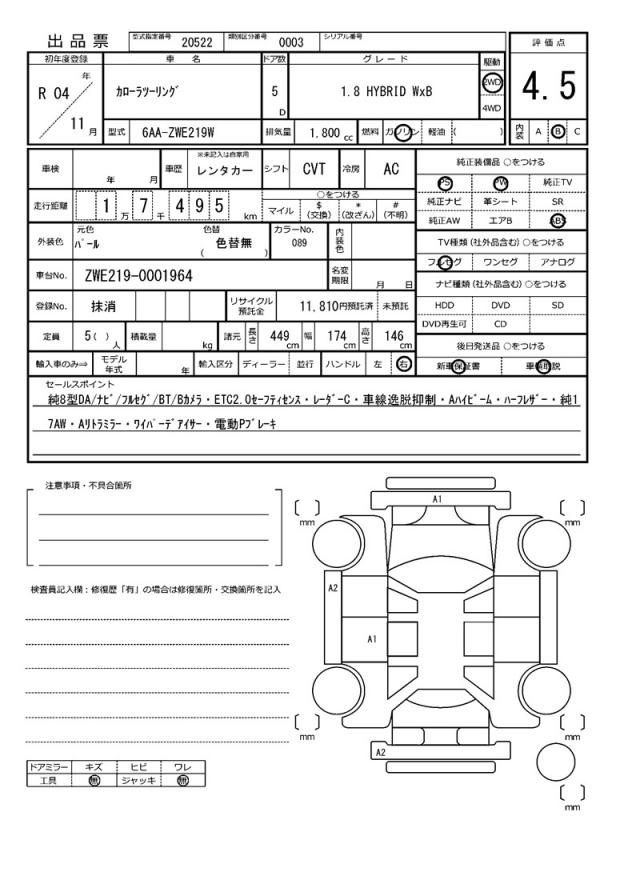 出品票
型式指定番号 20522 類別区分番号 0003 シリアル番号
評価点
4.5
初年度登録 車名 ドア数 グレード 駆動
R 04 年 11 月
カローラツーリング 5 D 1.8 HYBRID WxB 2WD 4WD
型式 6AA-ZWE219W 排気量 1.800 cc 燃料 ガソリン 軽油 ( )
内装 A B C
車検 年 月 車歴 ※未記入は自家用 レンタカー シフト CVT 冷房 AC
走行距離 1 万 7 千 4 9 5 km
○をつける
マイル $ (交換) * (改ざん) # (不明)
外装色 元色 パール 色替 ( 色替無 ) カラーNo. 089 内装色
車台No. ZWE219-0001964 名変期限 月 日
登録No. 抹消 リサイクル預託金 11,810円預託済 未預託
定員 5( ) 人 積載量 kg 諸元 長さ 449 cm 幅 174 cm 高さ 146 cm
輸入車のみ⇨ モデル年式 年 輸入区分 ディーラー 並行 ハンドル 左 右
純正装備品 ○をつける
PS PW 純正TV
純正ナビ 革シート SR
純正AW エアB ABS
TV種類(社外品含む) ○をつける
フルセグ ワンセグ アナログ
ナビ種類(社外品含む) ○をつける
HDD DVD SD
DVD再生可 CD
後日発送品 ○をつける
新車保証書 車輌取説
セールスポイント
純8型DA/ナビ/フルセグ/BT/Bカメラ・ETC2.0セーフティセンス・レーダーC・車線逸脱抑制・Aハイビーム・ハーフレザー・純1
7AW・Aリトラミラー・ワイパーデアイサー・電動Pブレーキ
注意事項・不具合箇所
検査員記入欄:修復歴「有」の場合は修復箇所・交換箇所を記入
ドアミラー キズ ヒビ ワレ
工具 無 ジャッキ 無
A1
mm
mm
A2
A1
mm
mm
A2
mm